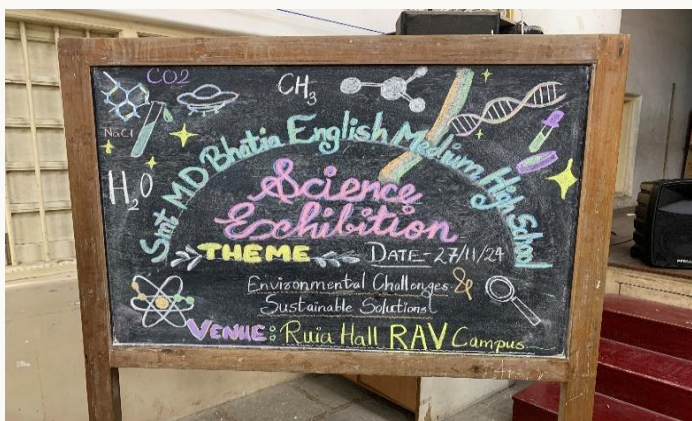 CO2
CH3
NaCl
H2O
Smt MD Bhatia English Medium High School
Science
Exhibition
THEME DATE - 27/11/24
Environmental Challenges &
Sustainable Solutions
VENUE: Ruia Hall RAV Campus